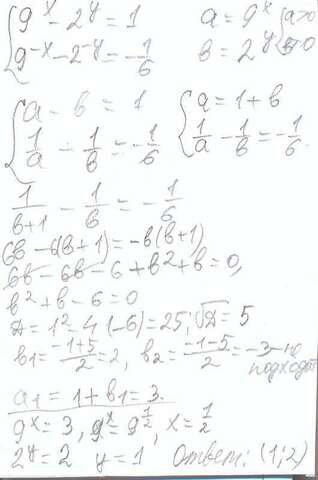 { 9^x - 2^y = 1    a = 9^x { a>0
{ 9^-x - 2^-y = -1/6    b = 2^y { b>0
{ a - b = 1    { a = 1 + b
{ 1/a - 1/b = -1/6    { 1/a - 1/b = -1/6.
1/(b+1) - 1/b = -1/6
6b - 6(b+1) = -b(b+1)
6b - 6b - 6 + b² + b = 0,
b² + b - 6 = 0
D = 1² - 4·(-6) = 25; √D = 5
b₁ = (-1+5)/2 = 2, b₂ = (-1-5)/2 = -3 - не подходит
a₁ = 1 + b₁ = 3.
9^x = 3, 9^x = 9^(1/2), x = 1/2
2^y = 2  y = 1  Ответ: (1;2)